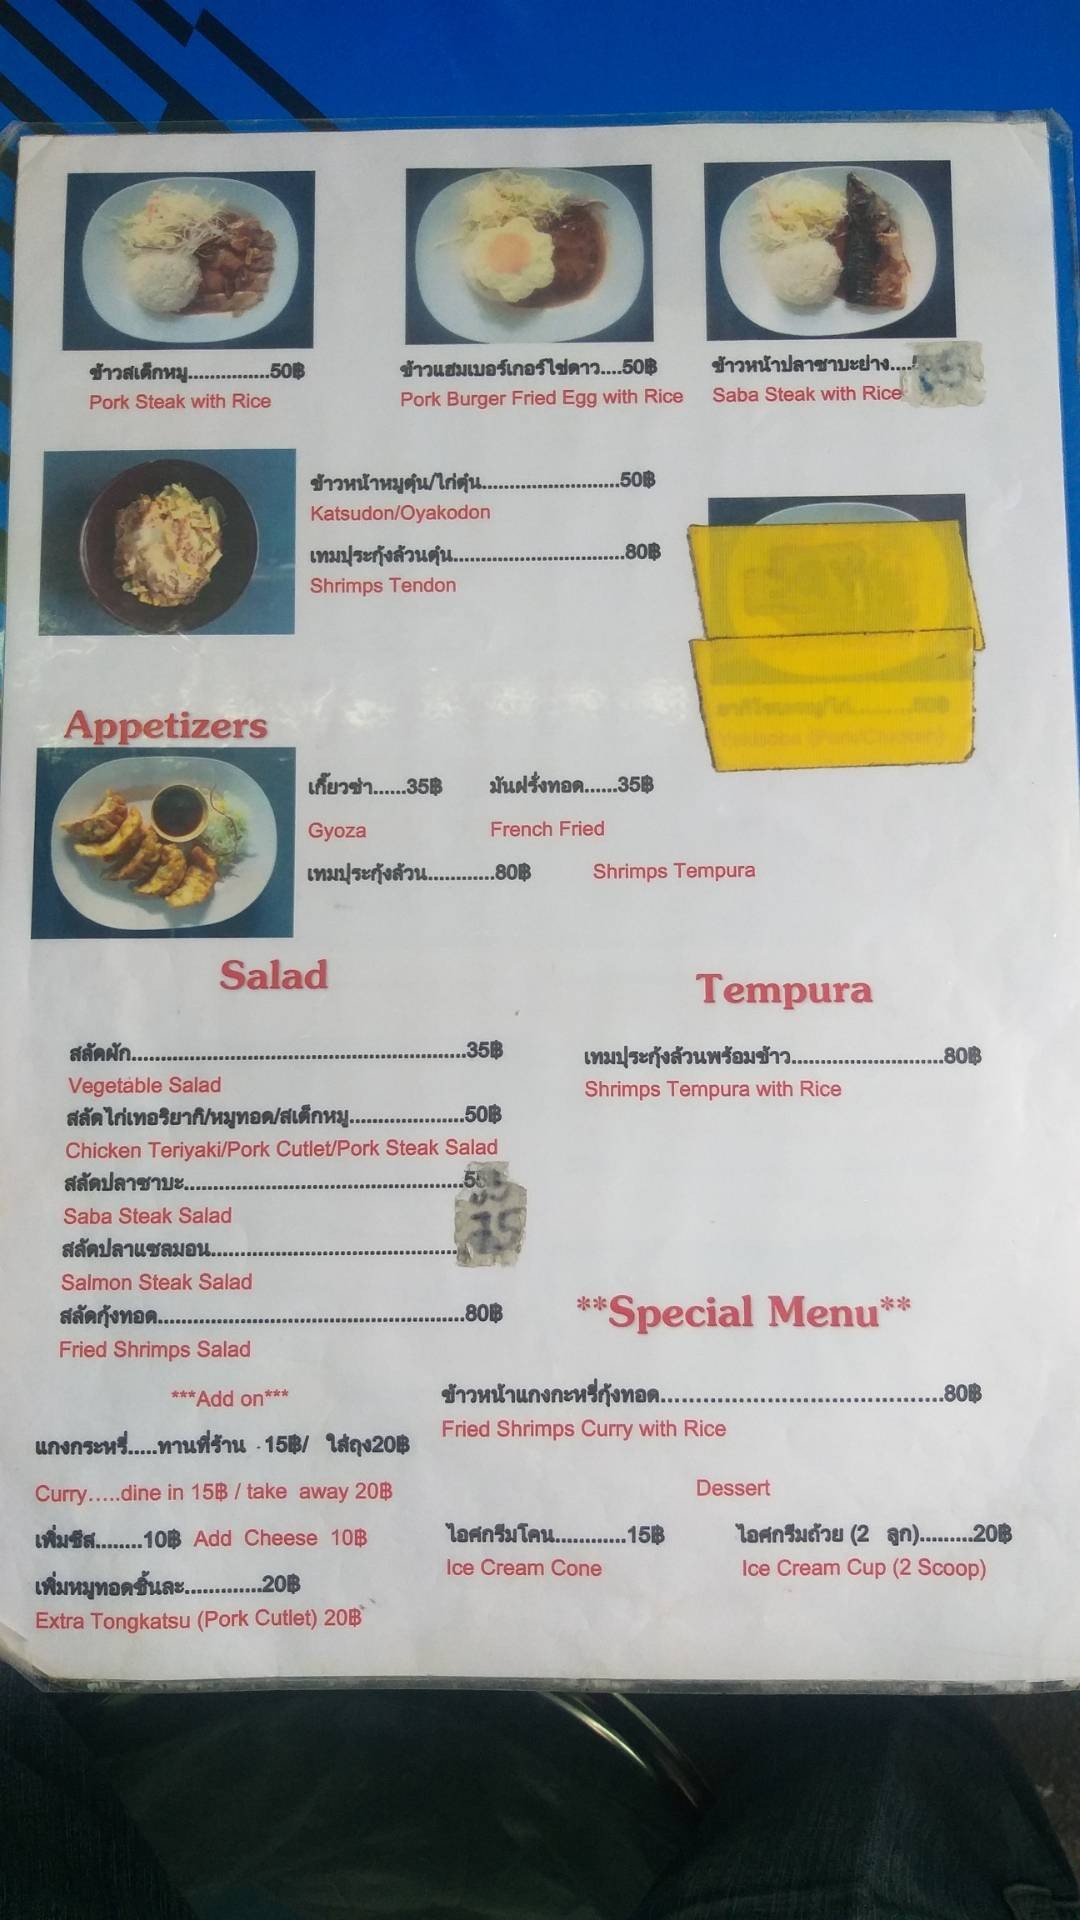 ข้าวสเต็กหมู...............50฿
Pork Steak with Rice
ข้าวแฮมเบอร์เกอร์ไข่ดาว....50฿
Pork Burger Fried Egg with Rice
ข้าวหน้าปลาซาบะย่าง....
Saba Steak with Rice
ข้าวหน้าหมูตุ๋น/ไก่ตุ๋น.........................50฿
Katsudon/Oyakodon
เทมปุระกุ้งล้วนตุ๋น...............................80฿
Shrimps Tendon
Appetizers
เกี๊ยวซ่า......35฿ มันฝรั่งทอด......35฿
Gyoza French Fried
เทมปุระกุ้งล้วน............80฿ Shrimps Tempura
Salad
สลัดผัก..........................................................35฿
Vegetable Salad
สลัดไก่เทอริยากิ/หมูทอด/สเต็กหมู....................50฿
Chicken Teriyaki/Pork Cutlet/Pork Steak Salad
สลัดปลาซาบะ................................................
Saba Steak Salad
สลัดปลาแซลมอน........................................... 75
Salmon Steak Salad
สลัดกุ้งทอด.....................................................80฿
Fried Shrimps Salad
Tempura
เทมปุระกุ้งล้วนพร้อมข้าว..........................80฿
Shrimps Tempura with Rice
***Add on***
แกงกระหรี่.....ทานที่ร้าน 15฿/ ใส่ถุง20฿
Curry.....dine in 15฿ / take away 20฿
เพิ่มชีส........10฿ Add Cheese 10฿
เพิ่มหมูทอดชิ้นละ.............20฿
Extra Tongkatsu (Pork Cutlet) 20฿
**Special Menu**
ข้าวหน้าแกงกะหรี่กุ้งทอด......................................80฿
Fried Shrimps Curry with Rice
Dessert
ไอศกรีมโคน............15฿
Ice Cream Cone
ไอศกรีมถ้วย (2 ลูก).........20฿
Ice Cream Cup (2 Scoop)